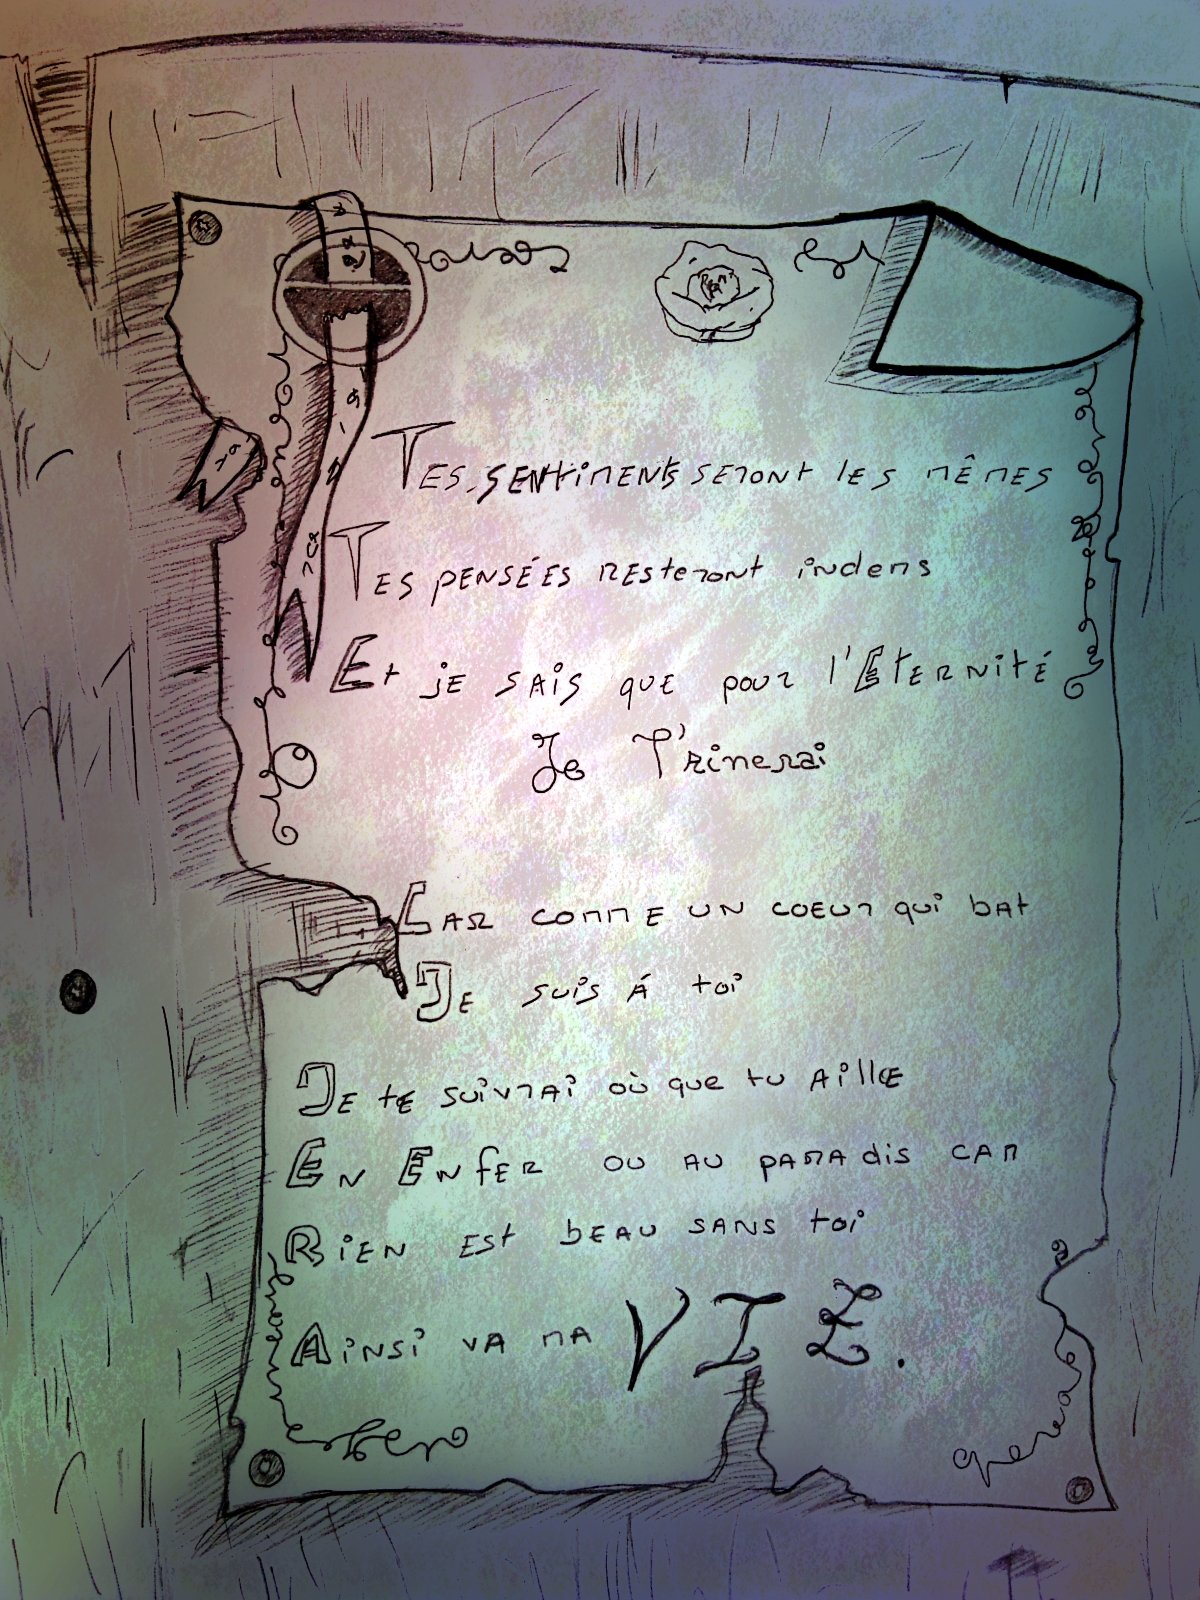 Tes sentiments seront les mêmes
Tes pensées resteront
Et je sais que pour l'Eternité
Je T'aimerai
Car comme un coeur qui bat
Je suis á toi
Je te suivrai où que tu aille
En Enfer ou au paradis car
Rien est beau sans toi
Ainsi va ma VIE.